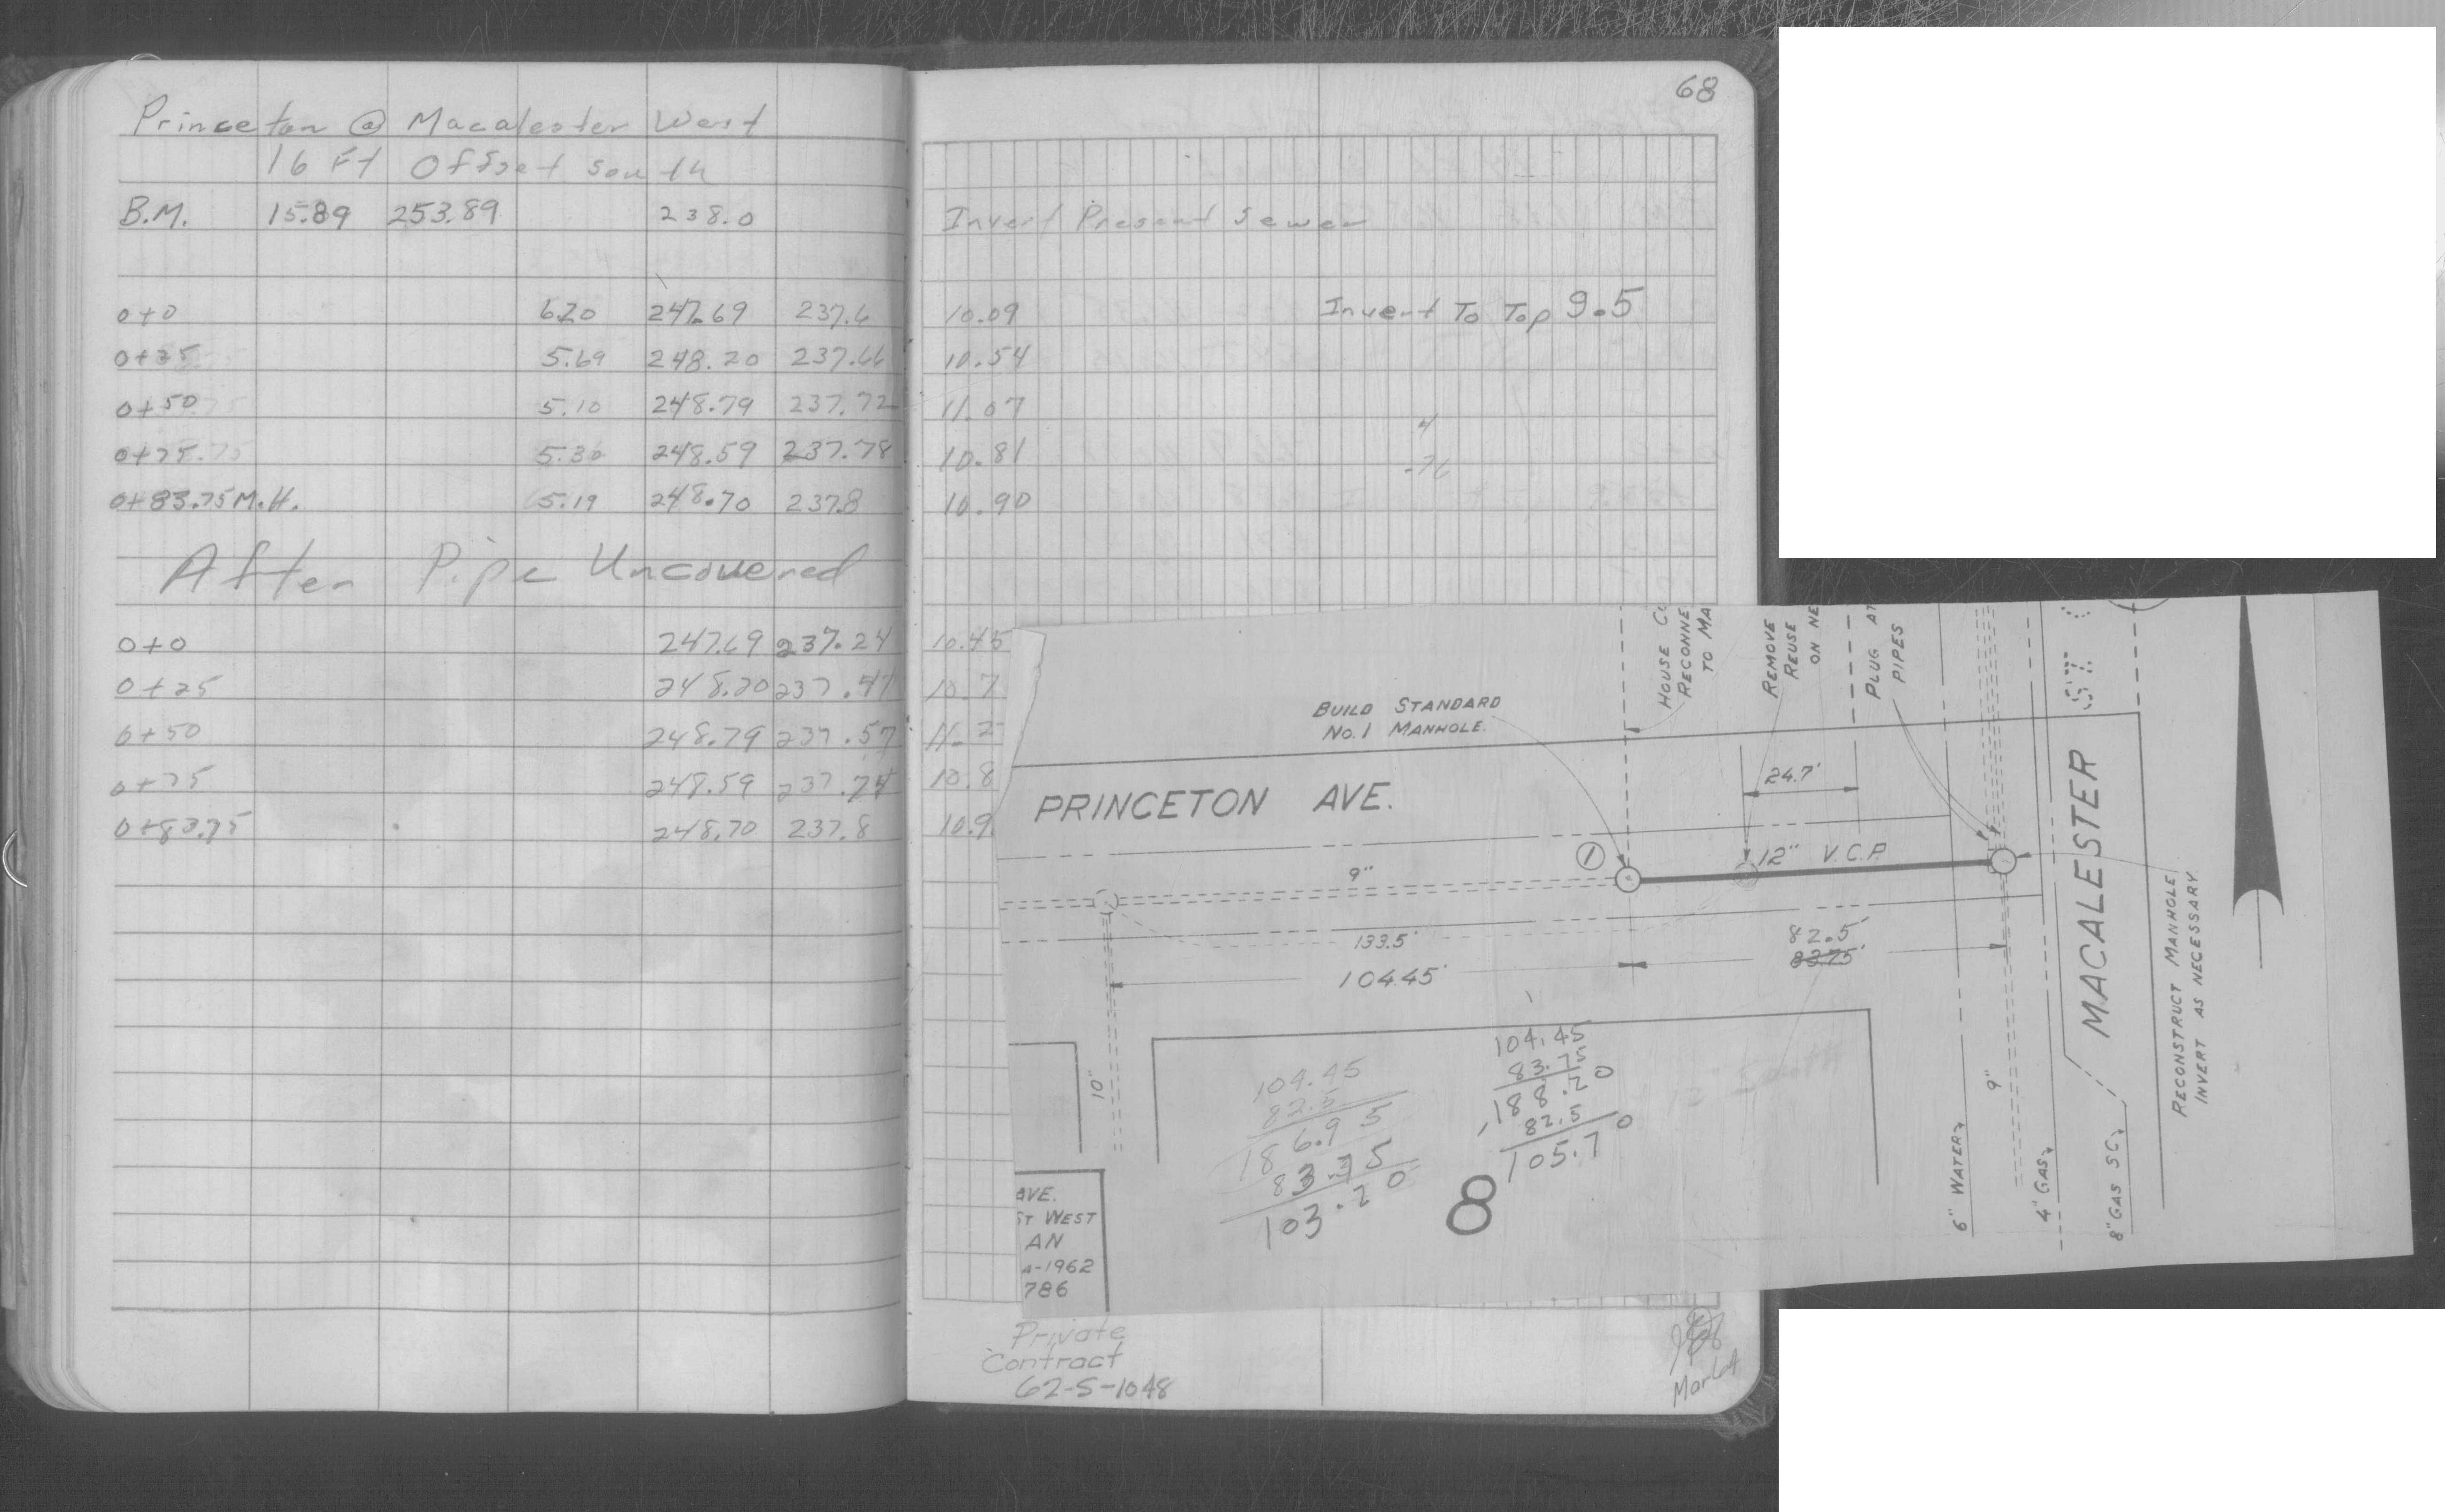 Princeton @ Macalester West
16 Ft Offset South
B.M. 15.89 253.89 238.0 Invert Present Sewer
0+0 6.20 247.69 237.6 10.09 Invert To Top 9.5
0+25 5.69 248.20 237.66 10.54
0+50 5.10 248.79 237.72 11.07
0+75 5.30 248.59 237.78 10.81
0+83.75 M.H. 5.19 248.70 237.8 10.90
After Pipe Uncovered
0+0 247.69 237.24 10.45
0+25 248.20 237.47 10.7
0+50 248.79 237.57 11.2
0+75 248.59 237.74 10.8
0+83.75 248.70 237.8 10.9
68
HOUSE
RECONNE
TO MA
REMOVE
REUSE
ON NE
PLUG AT
PIPES
ST
BUILD STANDARD
NO.1 MANHOLE.
PRINCETON AVE.
24.7'
1
12" V.C.P.
9"
133.5'
104.45'
82.5'
83.75'
MACALESTER
RECONSTRUCT MANHOLE
INVERT AS NECESSARY.
10"
9"
6" WATER
4" GAS
8" GAS SC.
104.45
82.5
186.95
83.75
103.20
104.45
83.75
188.20
82.5
105.70
8
AVE.
ST WEST
AN
A-1962
786
Private
Contract
62-S-1048